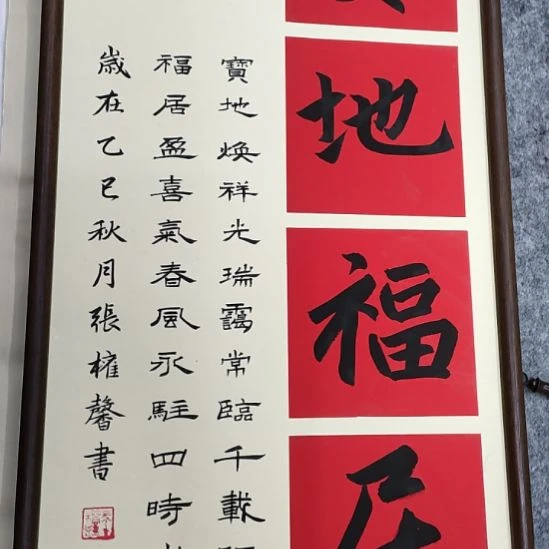 地福
寶地煥祥光瑞靄常臨千載
福居盈喜氣春風永駐四時
歲在乙巳秋月張權馨書